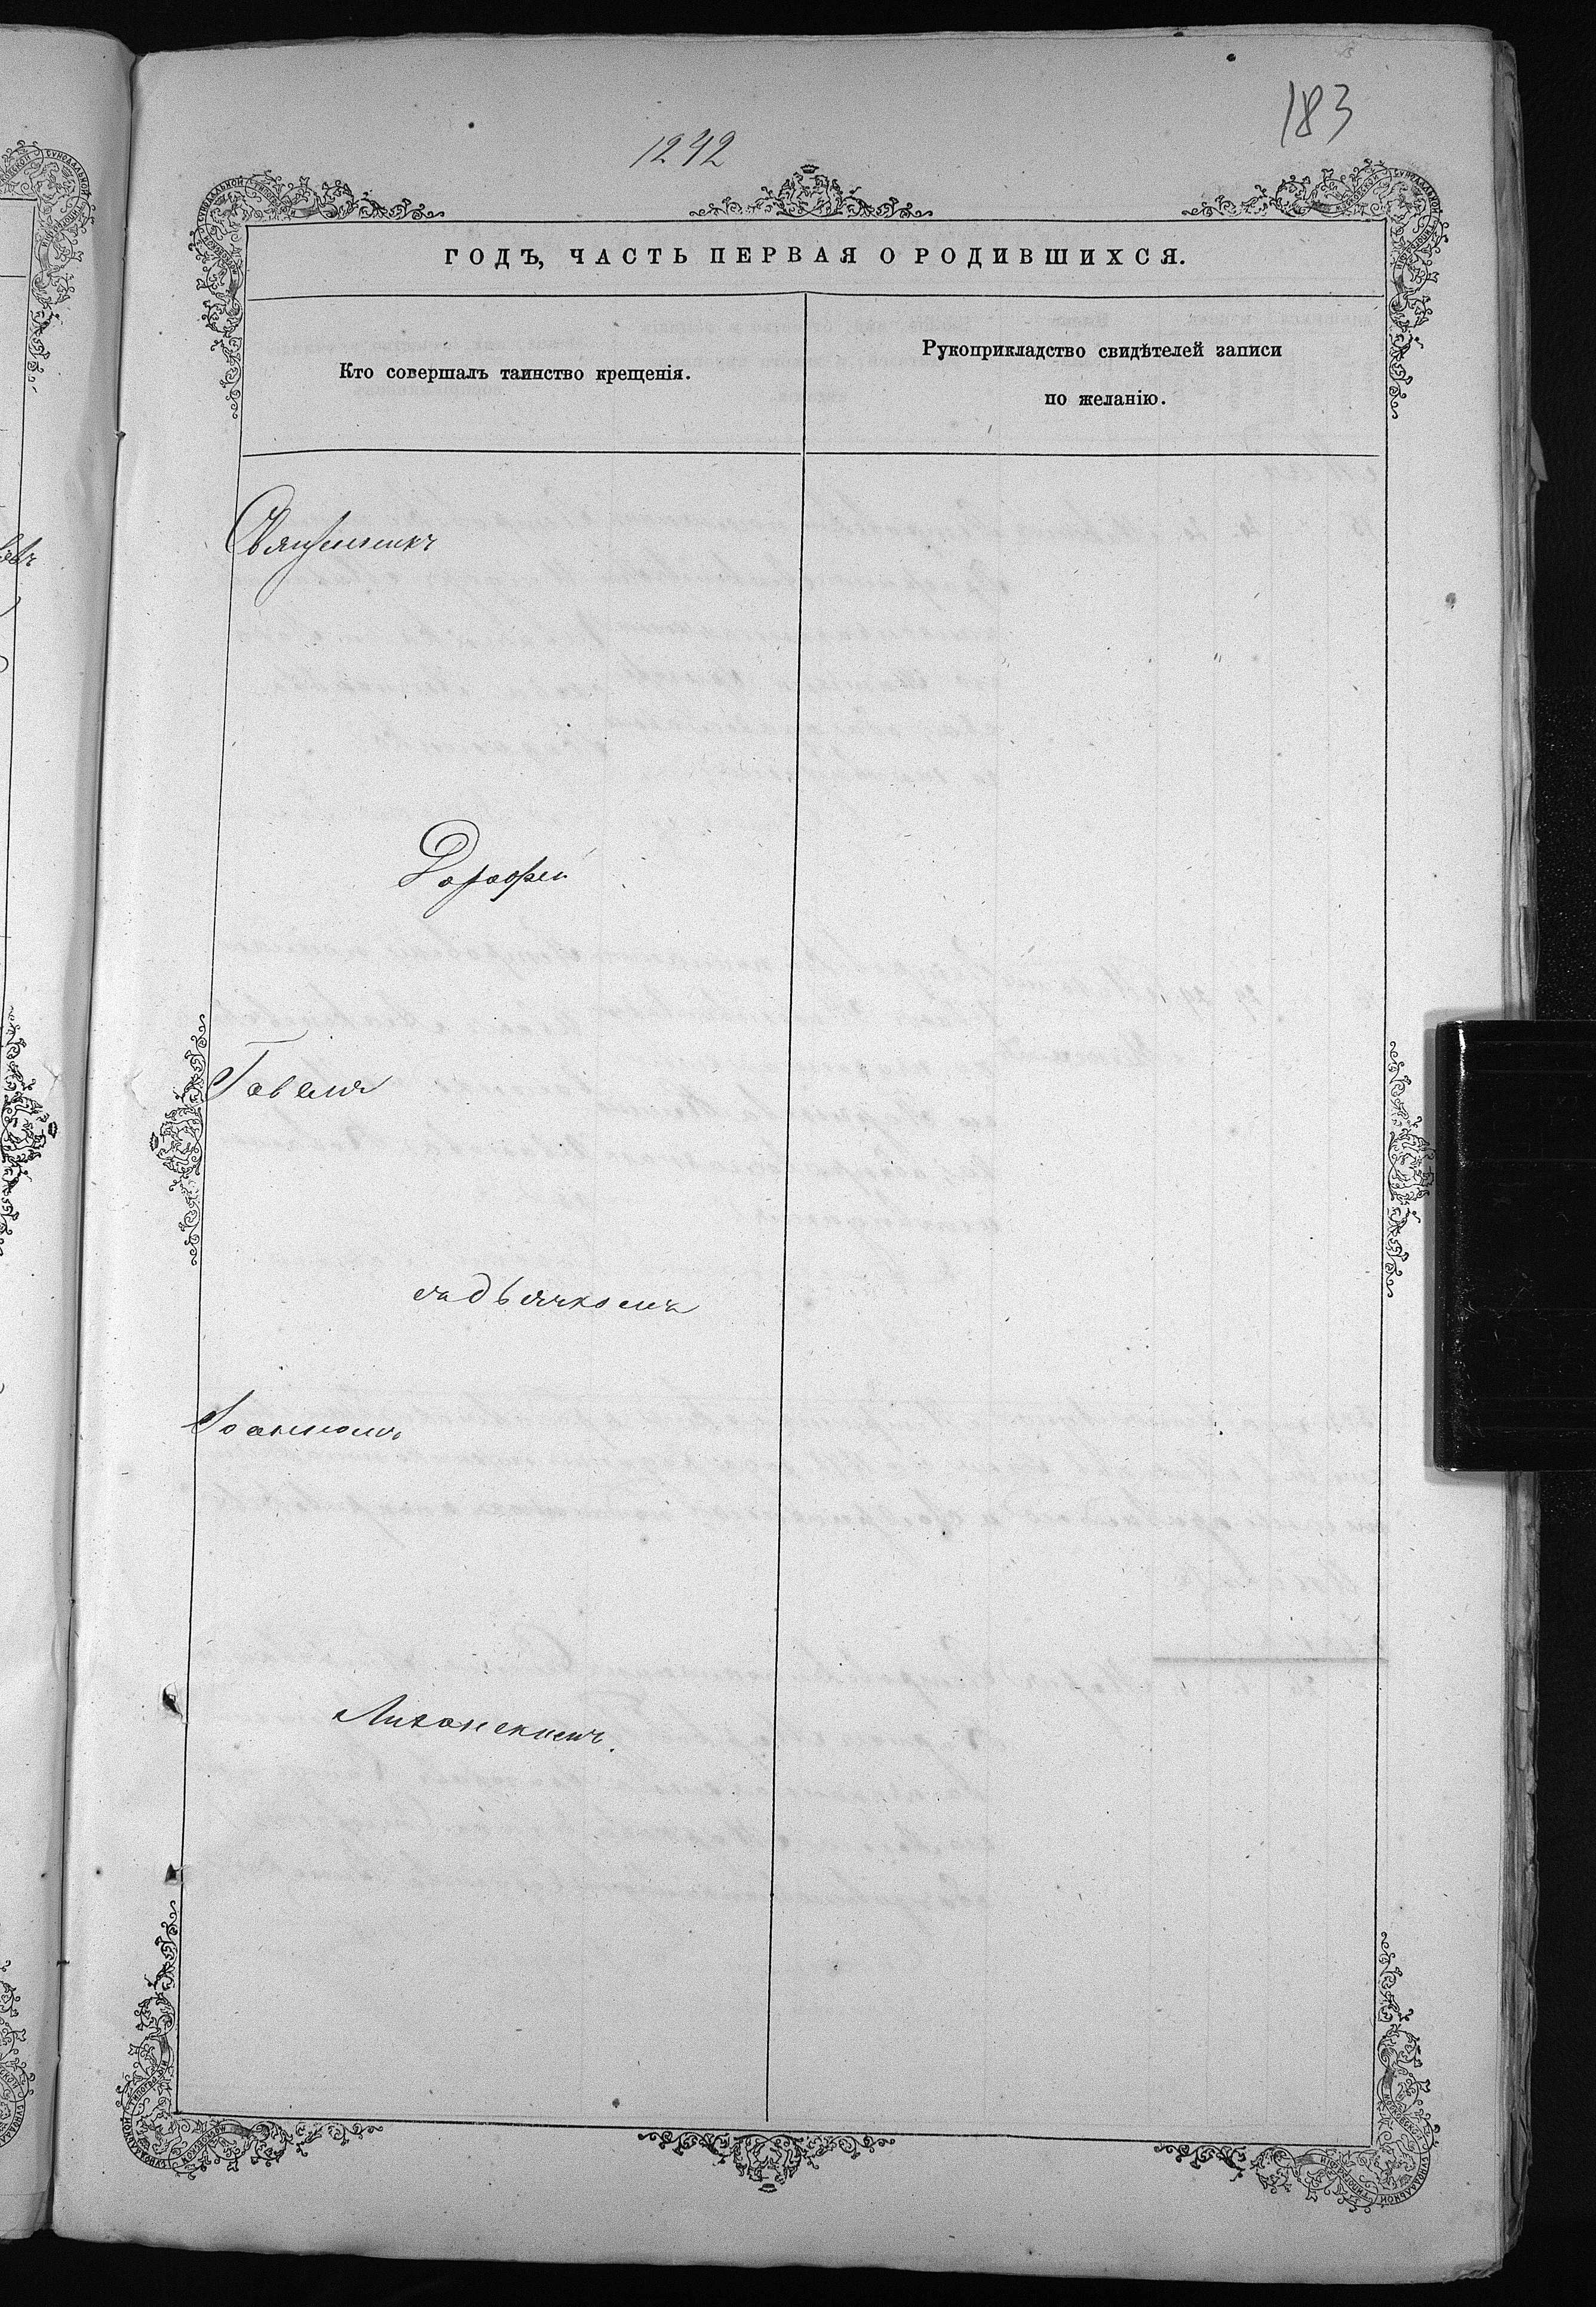 183
1242
ГОДЪ, ЧАСТЬ ПЕРВАЯ О РОДИВШИХСЯ.
Кто совершалъ таинство крещенія.
Рукоприкладство свидѣтелей записи
по желанію.
Священникъ
Дорофей
съ дьячкомъ
Іоанномъ